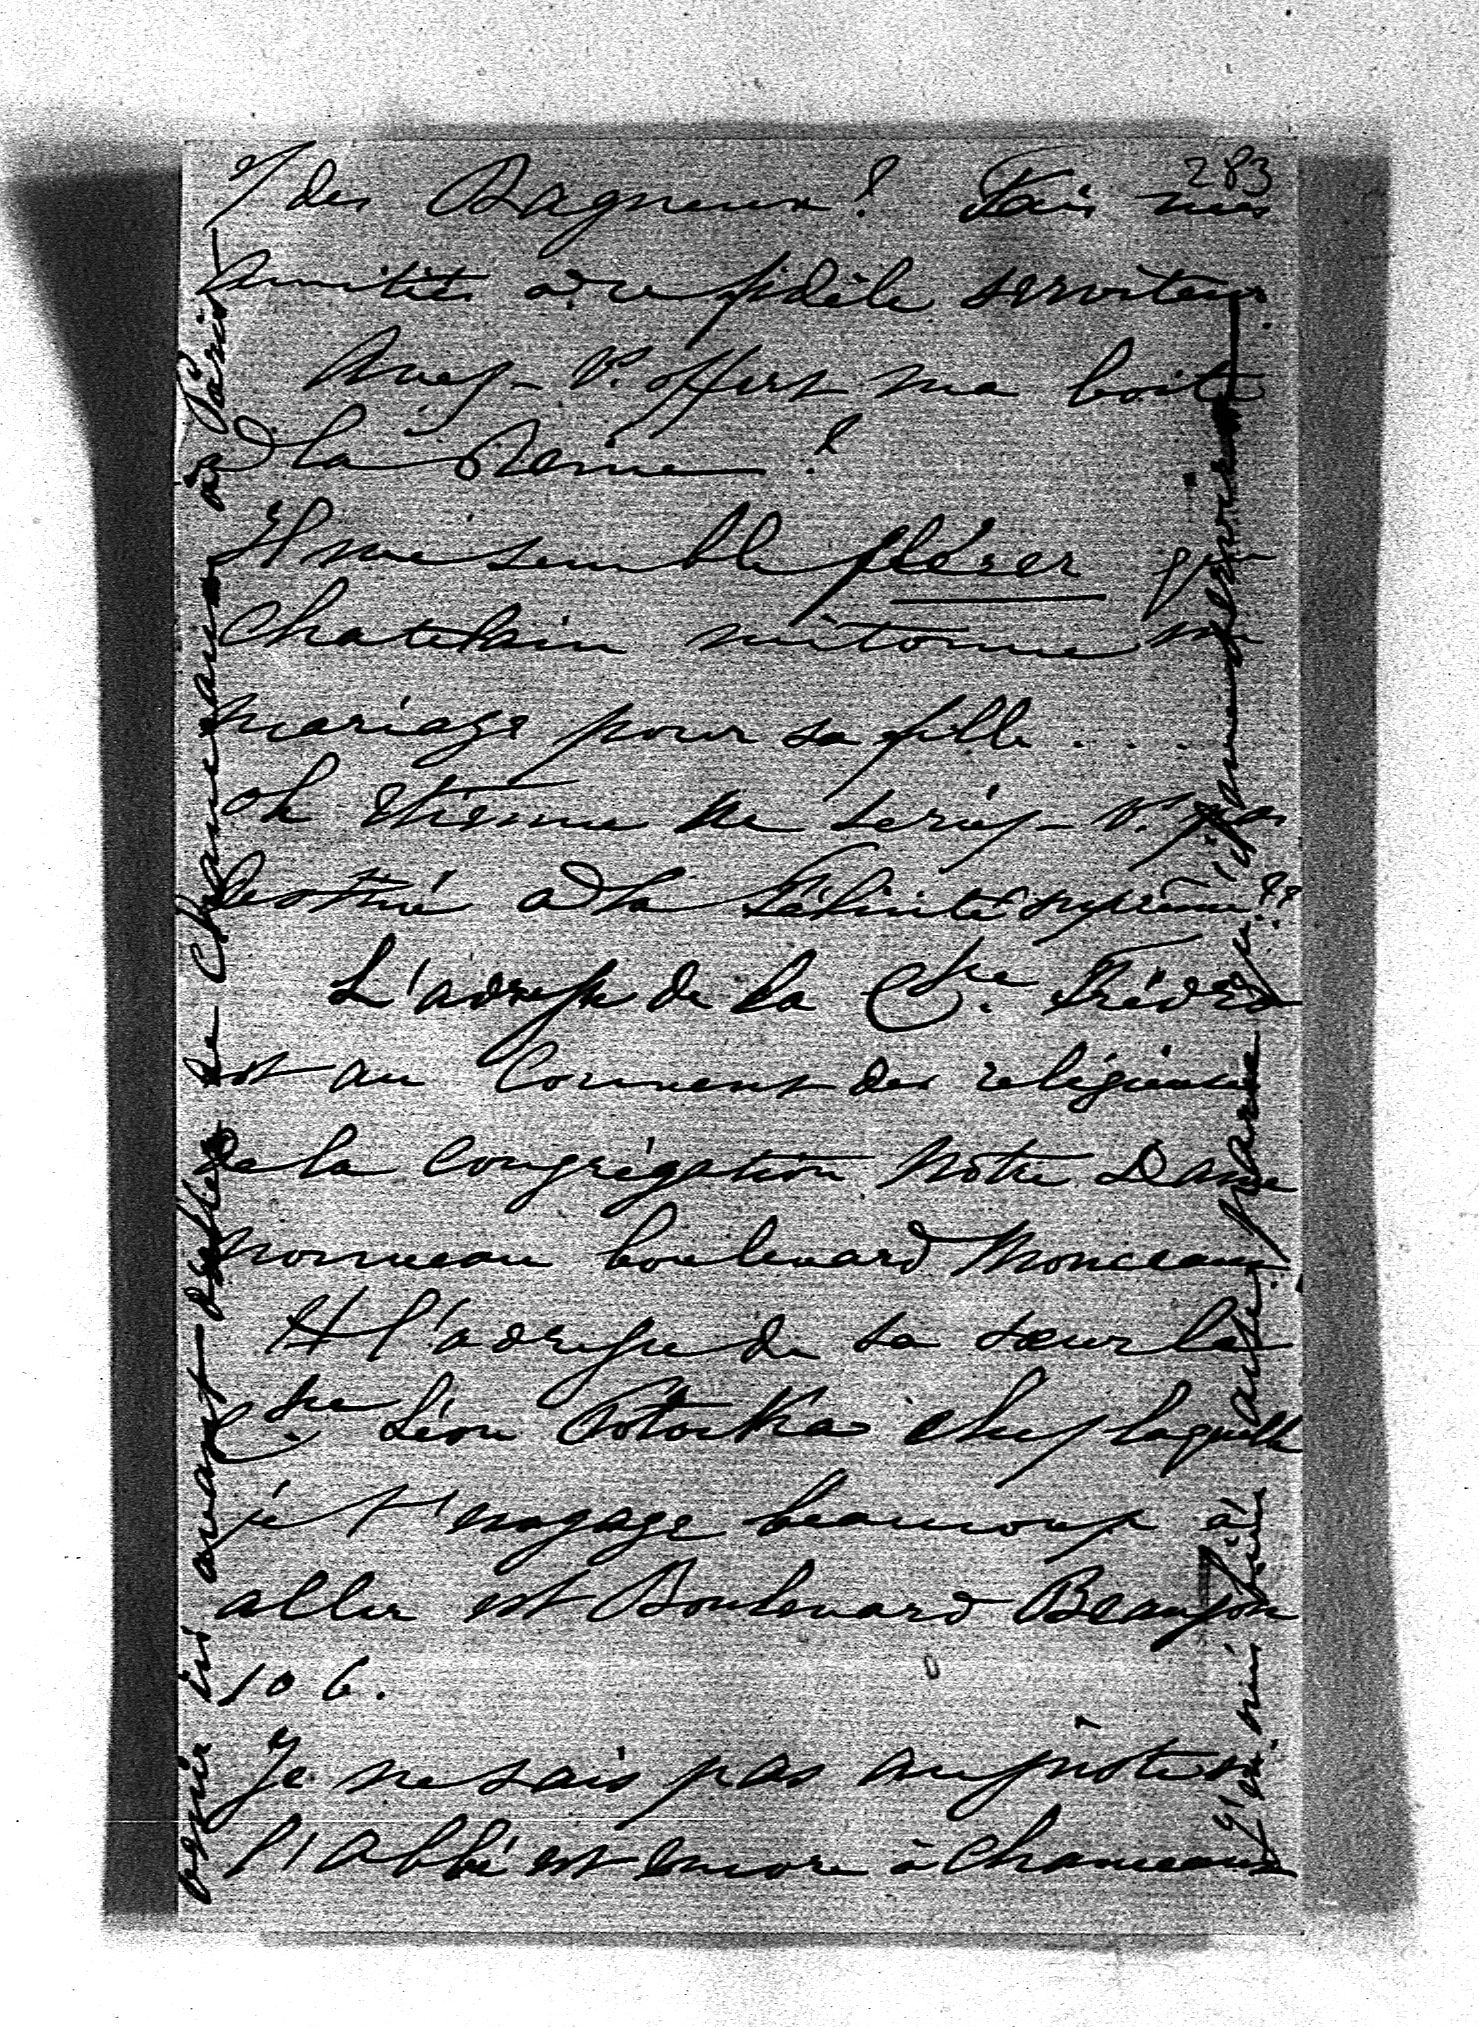 283
7/ des Bagneux ! Fais mes
amitiés à ce fidèle serviteur.
Avez-v. offert ma boite
à la Reine ?
Il me semble flérer que
Chatelain mitonne un
mariage pour sa fille . . . .
oh Etienne ne seriez-v. pas
destiné à la félicité suprême ??
L'adresse de la Ctsse. Frédro
est au Couvent des religieuses
de la Congrégation Notre Dame
nouveau boulevard Monceaux.
Et l'adresse de sa soeur la
Ctsse. Léon Potocka chez laquelle
je t'engage beaucoup à
aller est Boulevard Beaujon
106.
Je ne sais pas au juste si
l'Abbé est encore à Chanceaux
venir ici avant
de Chanceaux à Paris